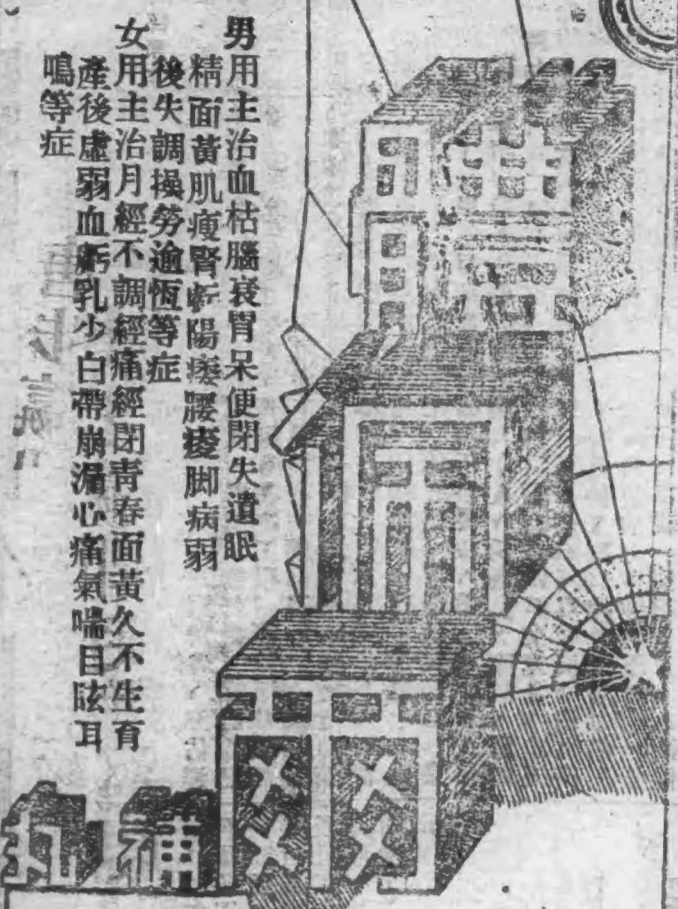 補丸
男用主治血枯腦衰胃呆便閉失遺眠
精面黃肌瘦腎虧陽痿腰痠脚病弱
後失調操勞逾恆等症
女用主治月經不調經痛經閉靑春面黃久不生育
產後虛弱血虧乳少白帶崩漏心痛氣喘目眩耳
鳴等症